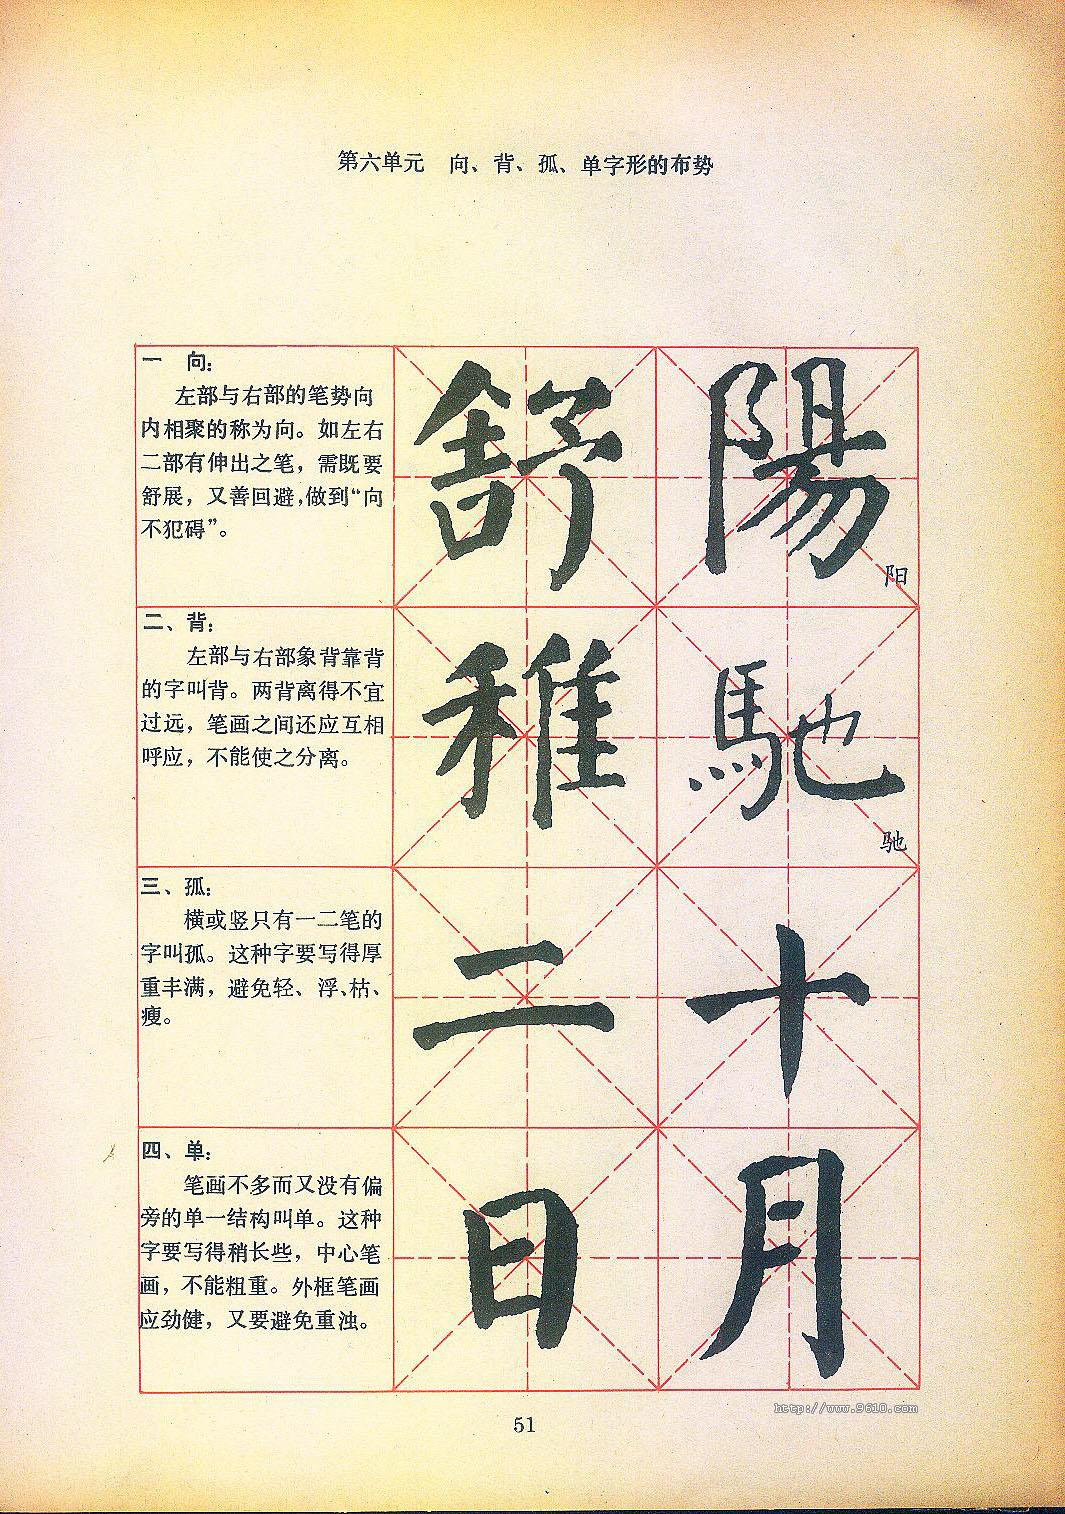 第六单元　向、背、孤、单字形的布势
一　向：
左部与右部的笔势向
内相聚的称为向。如左右
二部有伸出之笔，需既要
舒展，又善回避，做到“向
不犯碍”。
舒 陽
阳
二、背：
左部与右部象背靠背
的字叫背。两背离得不宜
过远，笔画之间还应互相
呼应，不能使之分离。
稚 馳
驰
三、孤：
横或竖只有一二笔的
字叫孤。这种字要写得厚
重丰满，避免轻、浮、枯、
瘦。
二 十
四、单：
笔画不多而又没有偏
旁的单一结构叫单。这种
字要写得稍长些，中心笔
画，不能粗重。外框笔画
应劲健，又要避免重浊。
日 月
http://www.9610.com
51